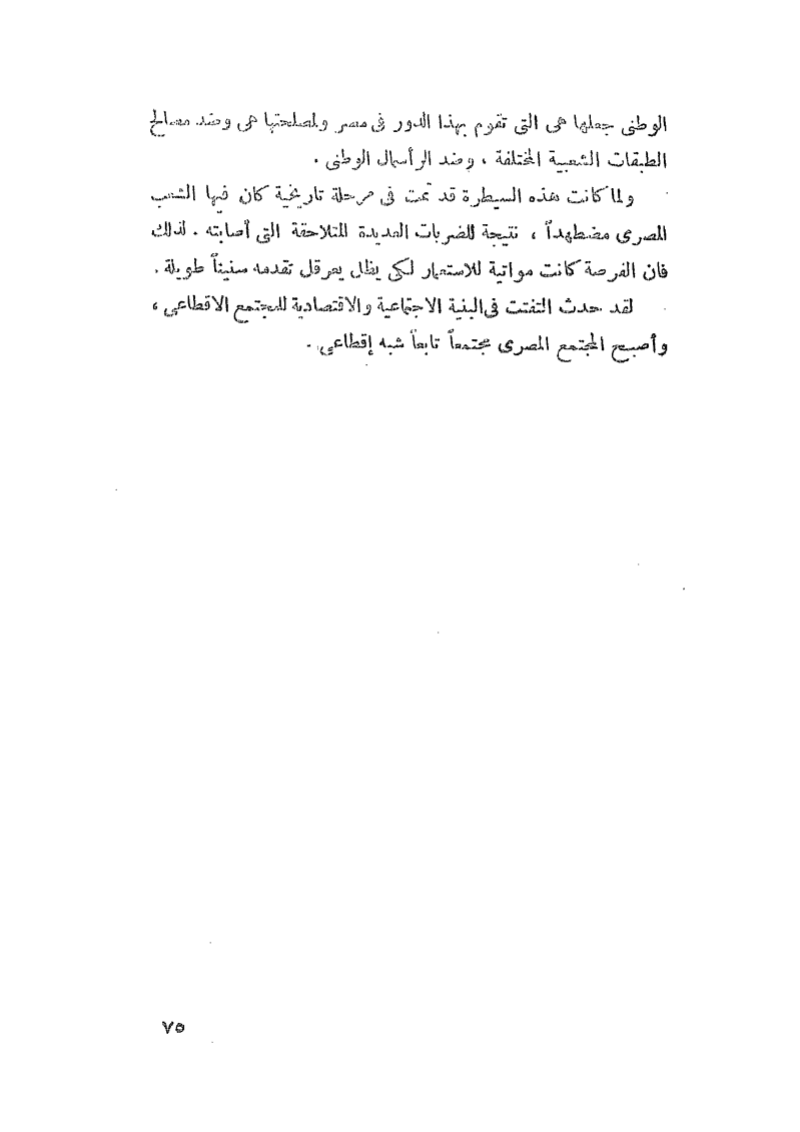 الوطنى جعلها هى التى تقوم بهذا الدور فى مصر ولمصلحتها هى وضد مصالح
الطبقات الشعبية المختلفة ، وضد الرأسمال الوطنى .
ولما كانت هذه السيطرة قد تمت فى مرحلة تاريخية كان فيها الشعب
المصرى مضطهداً ، نتيجة للضربات العديدة المتلاحقة التى أصابته . لذلك
فان الفرصة كانت مواتية للاستعمار لكى يظل يعرقل تقدمه سنيناً طويلة .
لقد حدث التفتت فى البنية الاجتماعية والاقتصادية للمجتمع الاقطاعى ،
وأصبح المجتمع المصرى مجتمعاً تابعاً شبه إقطاعى .
٧٥